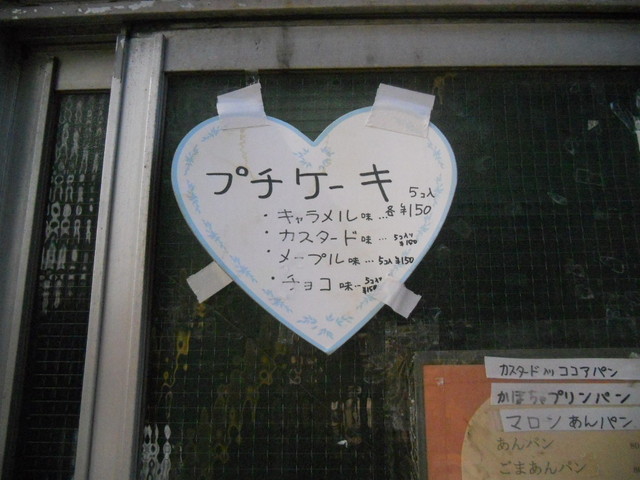 プチケーキ 5コ入
・キャラメル味…各¥150
・カスタード味…5コ入り¥150
・メープル味…5コ入¥150
・チョコ味…5コ入り¥150
カスタード川ココアパン
かぼちゃプリンパン
マロンあんパン
あんパン
ごまあんパン